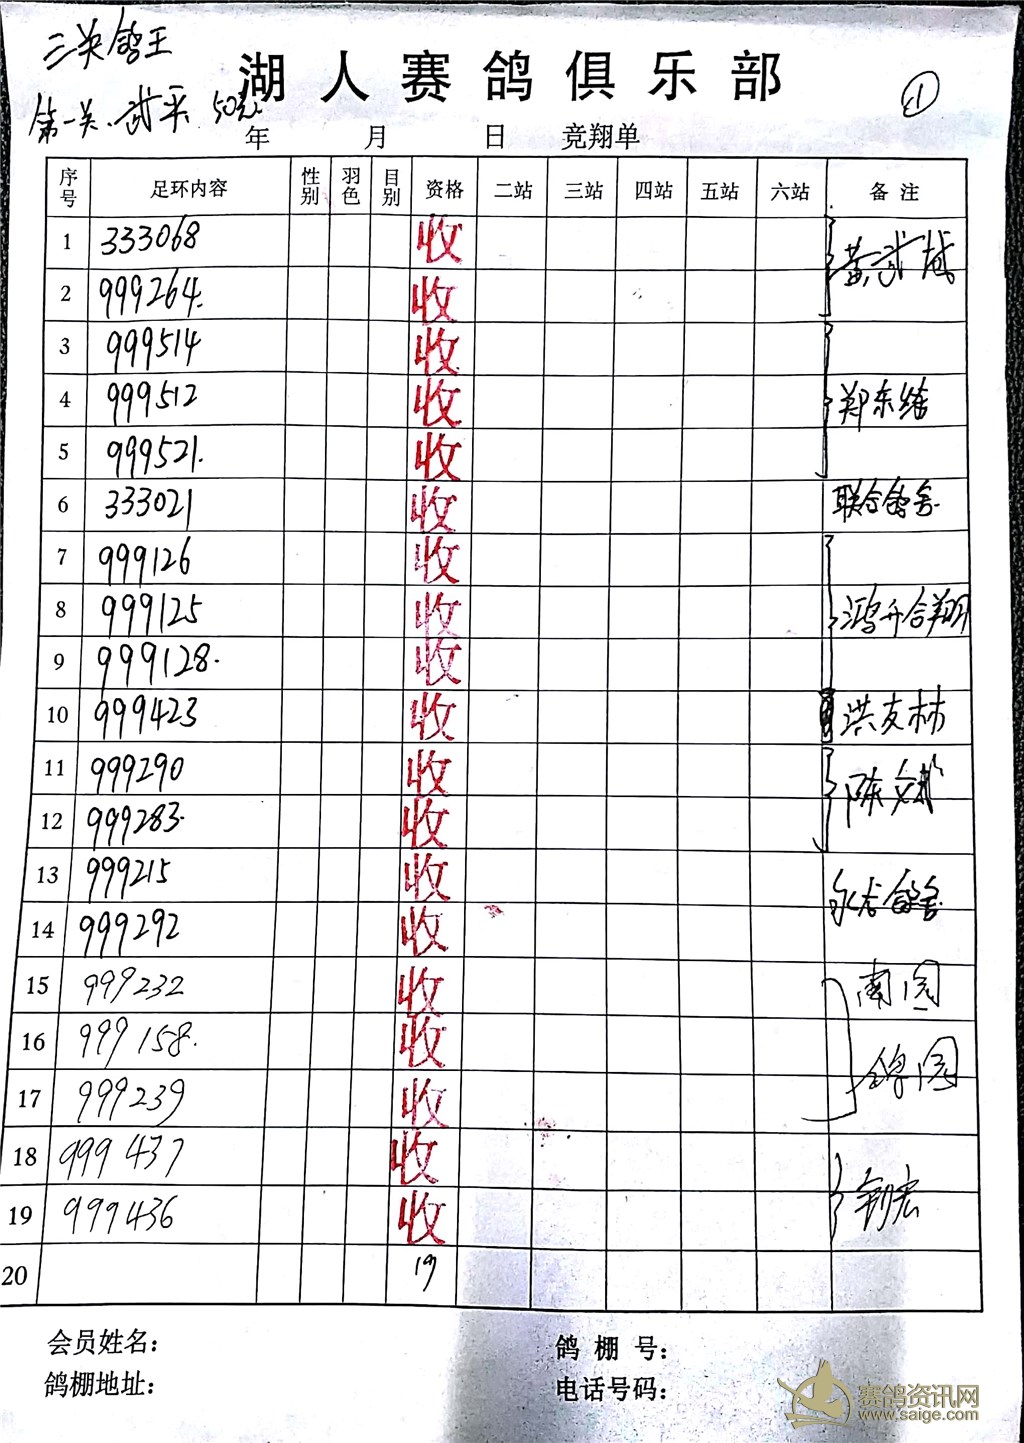 三关鸽王
湖人赛鸽俱乐部
第一关、武平 50元
①
年 月 日 竞翔单
序号 足环内容 性别 羽色 目别 资格 二站 三站 四站 五站 六站 备注
1 333068 收
2 999264. 收
3 999514 收
4 999512 收 郑东
5 999521. 收
6 333021 收 联合鸽舍
7 999126 收
8 999125 收 鸿升合翔
9 999128. 收
10 999423 收 洪友林
11 999290 收
12 999283. 收 陈文彬
13 999215 收
14 999292 收 鸽舍
15 999232 收 南园
16 999158. 收 园
17 999239 收
18 999437 收
19 999436 收 宏
20 19
会员姓名： 鸽棚号：
鸽棚地址： 电话号码：
赛鸽资讯网
www.saige.com